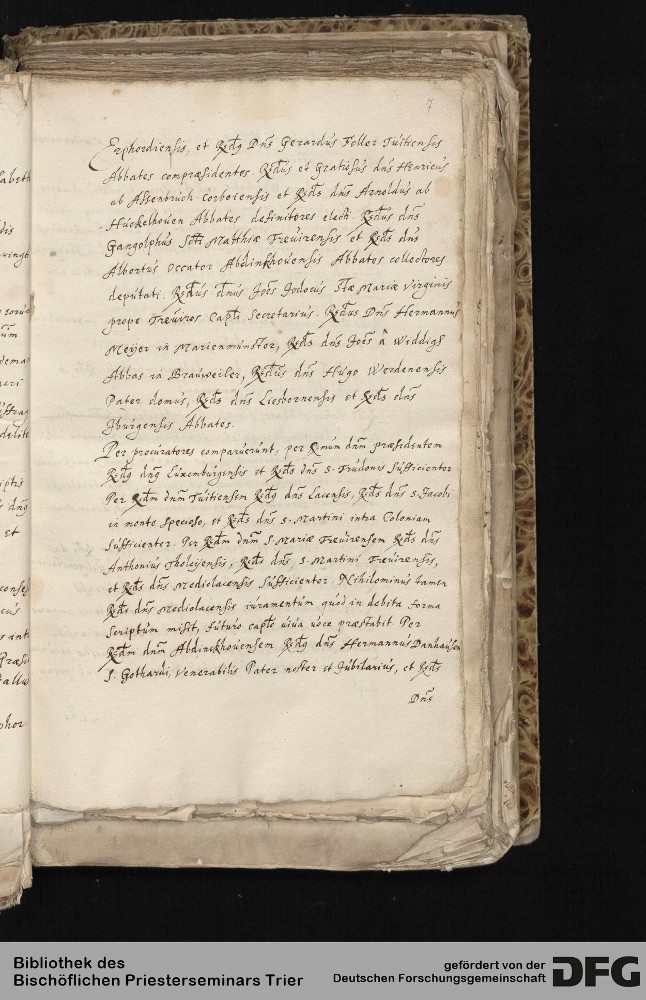 7
Erphordiensis, et Rdq Dns Gerardus Foller Tuitiensis
Abbates compræsidentes. Rdus et Gratiosus dns Henricus
ab Assenbruch Corboiensis et Rds dns Arnoldus ab
Huckelhouen Abbates definitores electi. Rdus dns
Gangolphus Scti Matthiæ Treuirensis et Rds dns
Albertus Occator Abdinkhouensis Abbates collectores
deputati. Rdus dnus Joes Jodocus Stæ Mariæ Virginis
prope Treuiros Capli Secretarius. Rdus Dns Hermannus
Meyer in Marienmünster, Rds dns Joes à Widdigs
Abbas in Brauweiler, Rdus dns Hugo Werdenensis
Pater domus, Rds dns Liesbornensis et Rds dns
Iburgensis Abbates.
Per procuratores comparuerunt, per Rmum dnm præsidentem
Rdq dnq Luxemburgensis et Rds dns S. Trudonis Sufficienter
Per Rdm dnm Tuitiensem Rdq dns Lacensis, Rds dns S. Jacobi
in monte Specioso, et Rds dns S. Martini intra Coloniam
Sufficienter. Per Rdm dnm S. Mariæ Treuirensem Rds dns
Anthonius Tholeyensis, Rds dns S. Martini Treuirensis,
et Rds dns Mediolacensis Sufficienter. Nihilominus tamen
Rds dns Mediolacensis iuramentum quod in debita forma
Scriptum misit, futuro caplo uiua uoce præstabit. Per
Rdm dnm Abdinckhouensem Rdq dns Hermannus Danhausen
S. Gothardi, Venerabilis Pater noster et Jubilarius, et Rds
Dns
Bibliothek des
Bischöflichen Priesterseminars Trier
gefördert von der
Deutschen Forschungsgemeinschaft
DFG